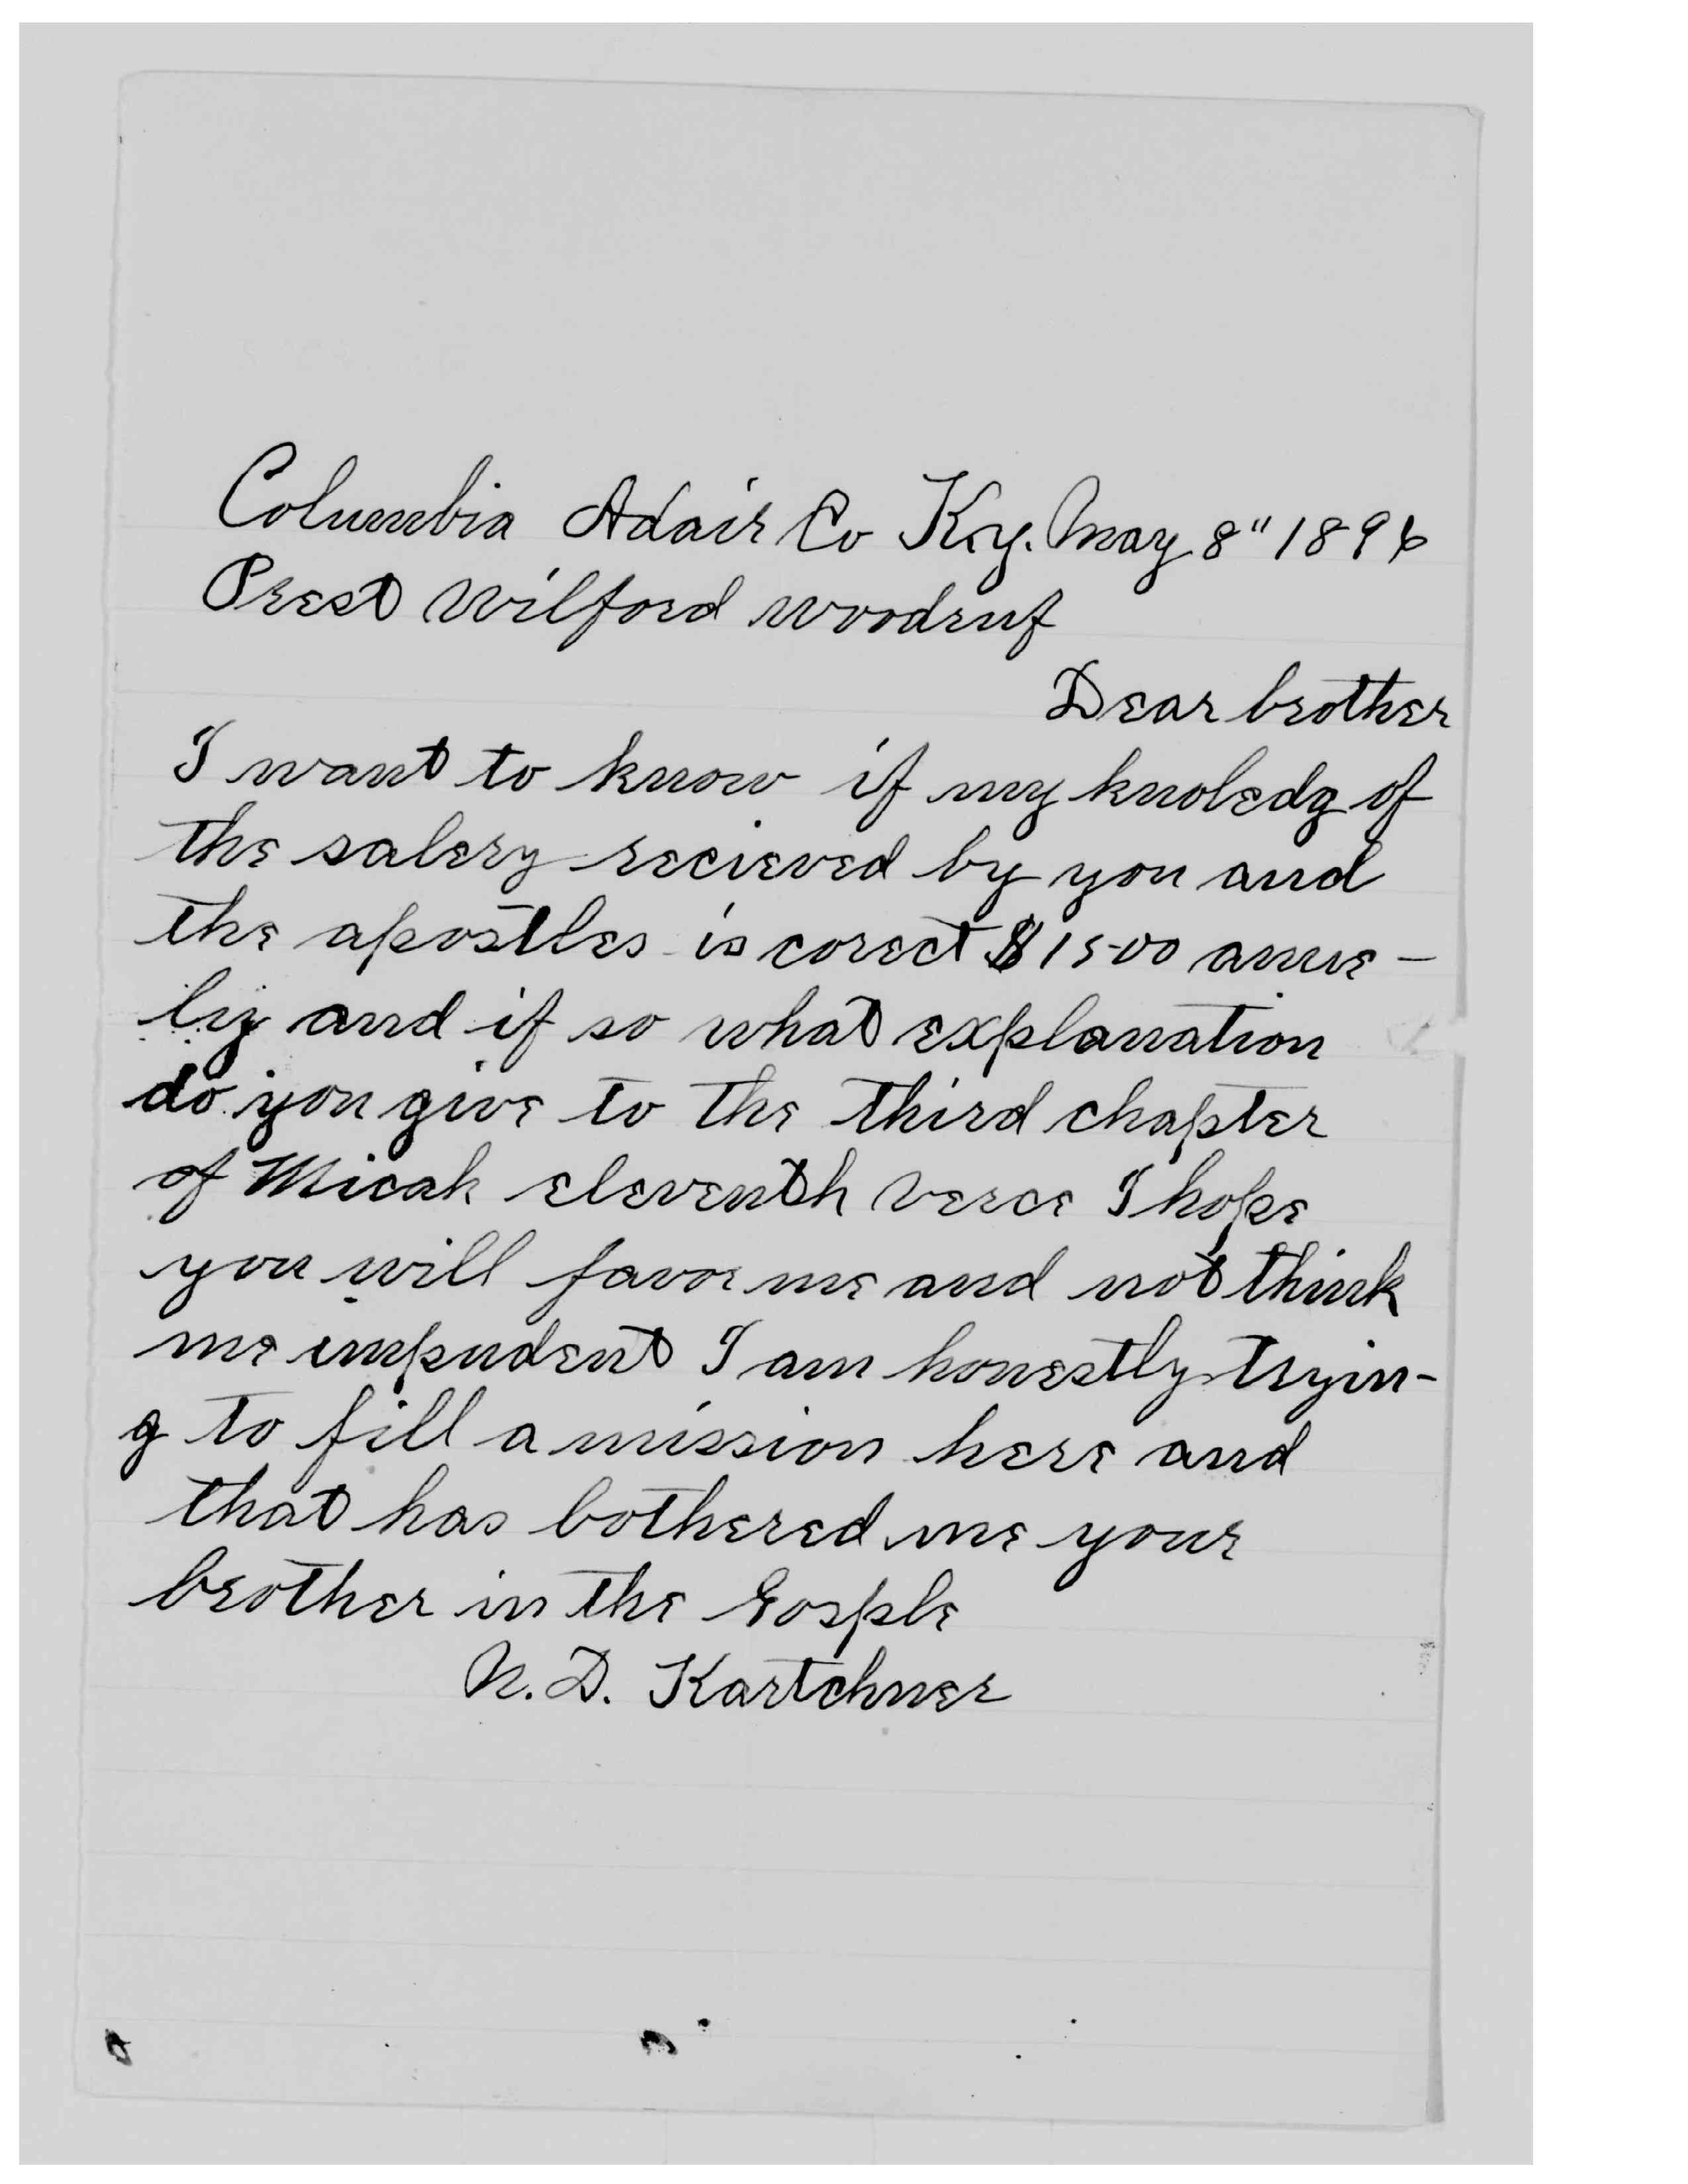 Columbia Adair Co Ky. May 8" 1896
Prest Wilford Woodruf
Dear brother
I want to know if my knoledg of
the salery recieved by you and
the apostles is corect $1500 anue-
ly and if so what explanation
do you give to the third chapter
of Micah eleventh verce I hope
you will favor me and not think
me impudent I am honestly tryin-
g to fill a mission here and
that has bothered me your
brother in the Gosple
N. D. Kartchner